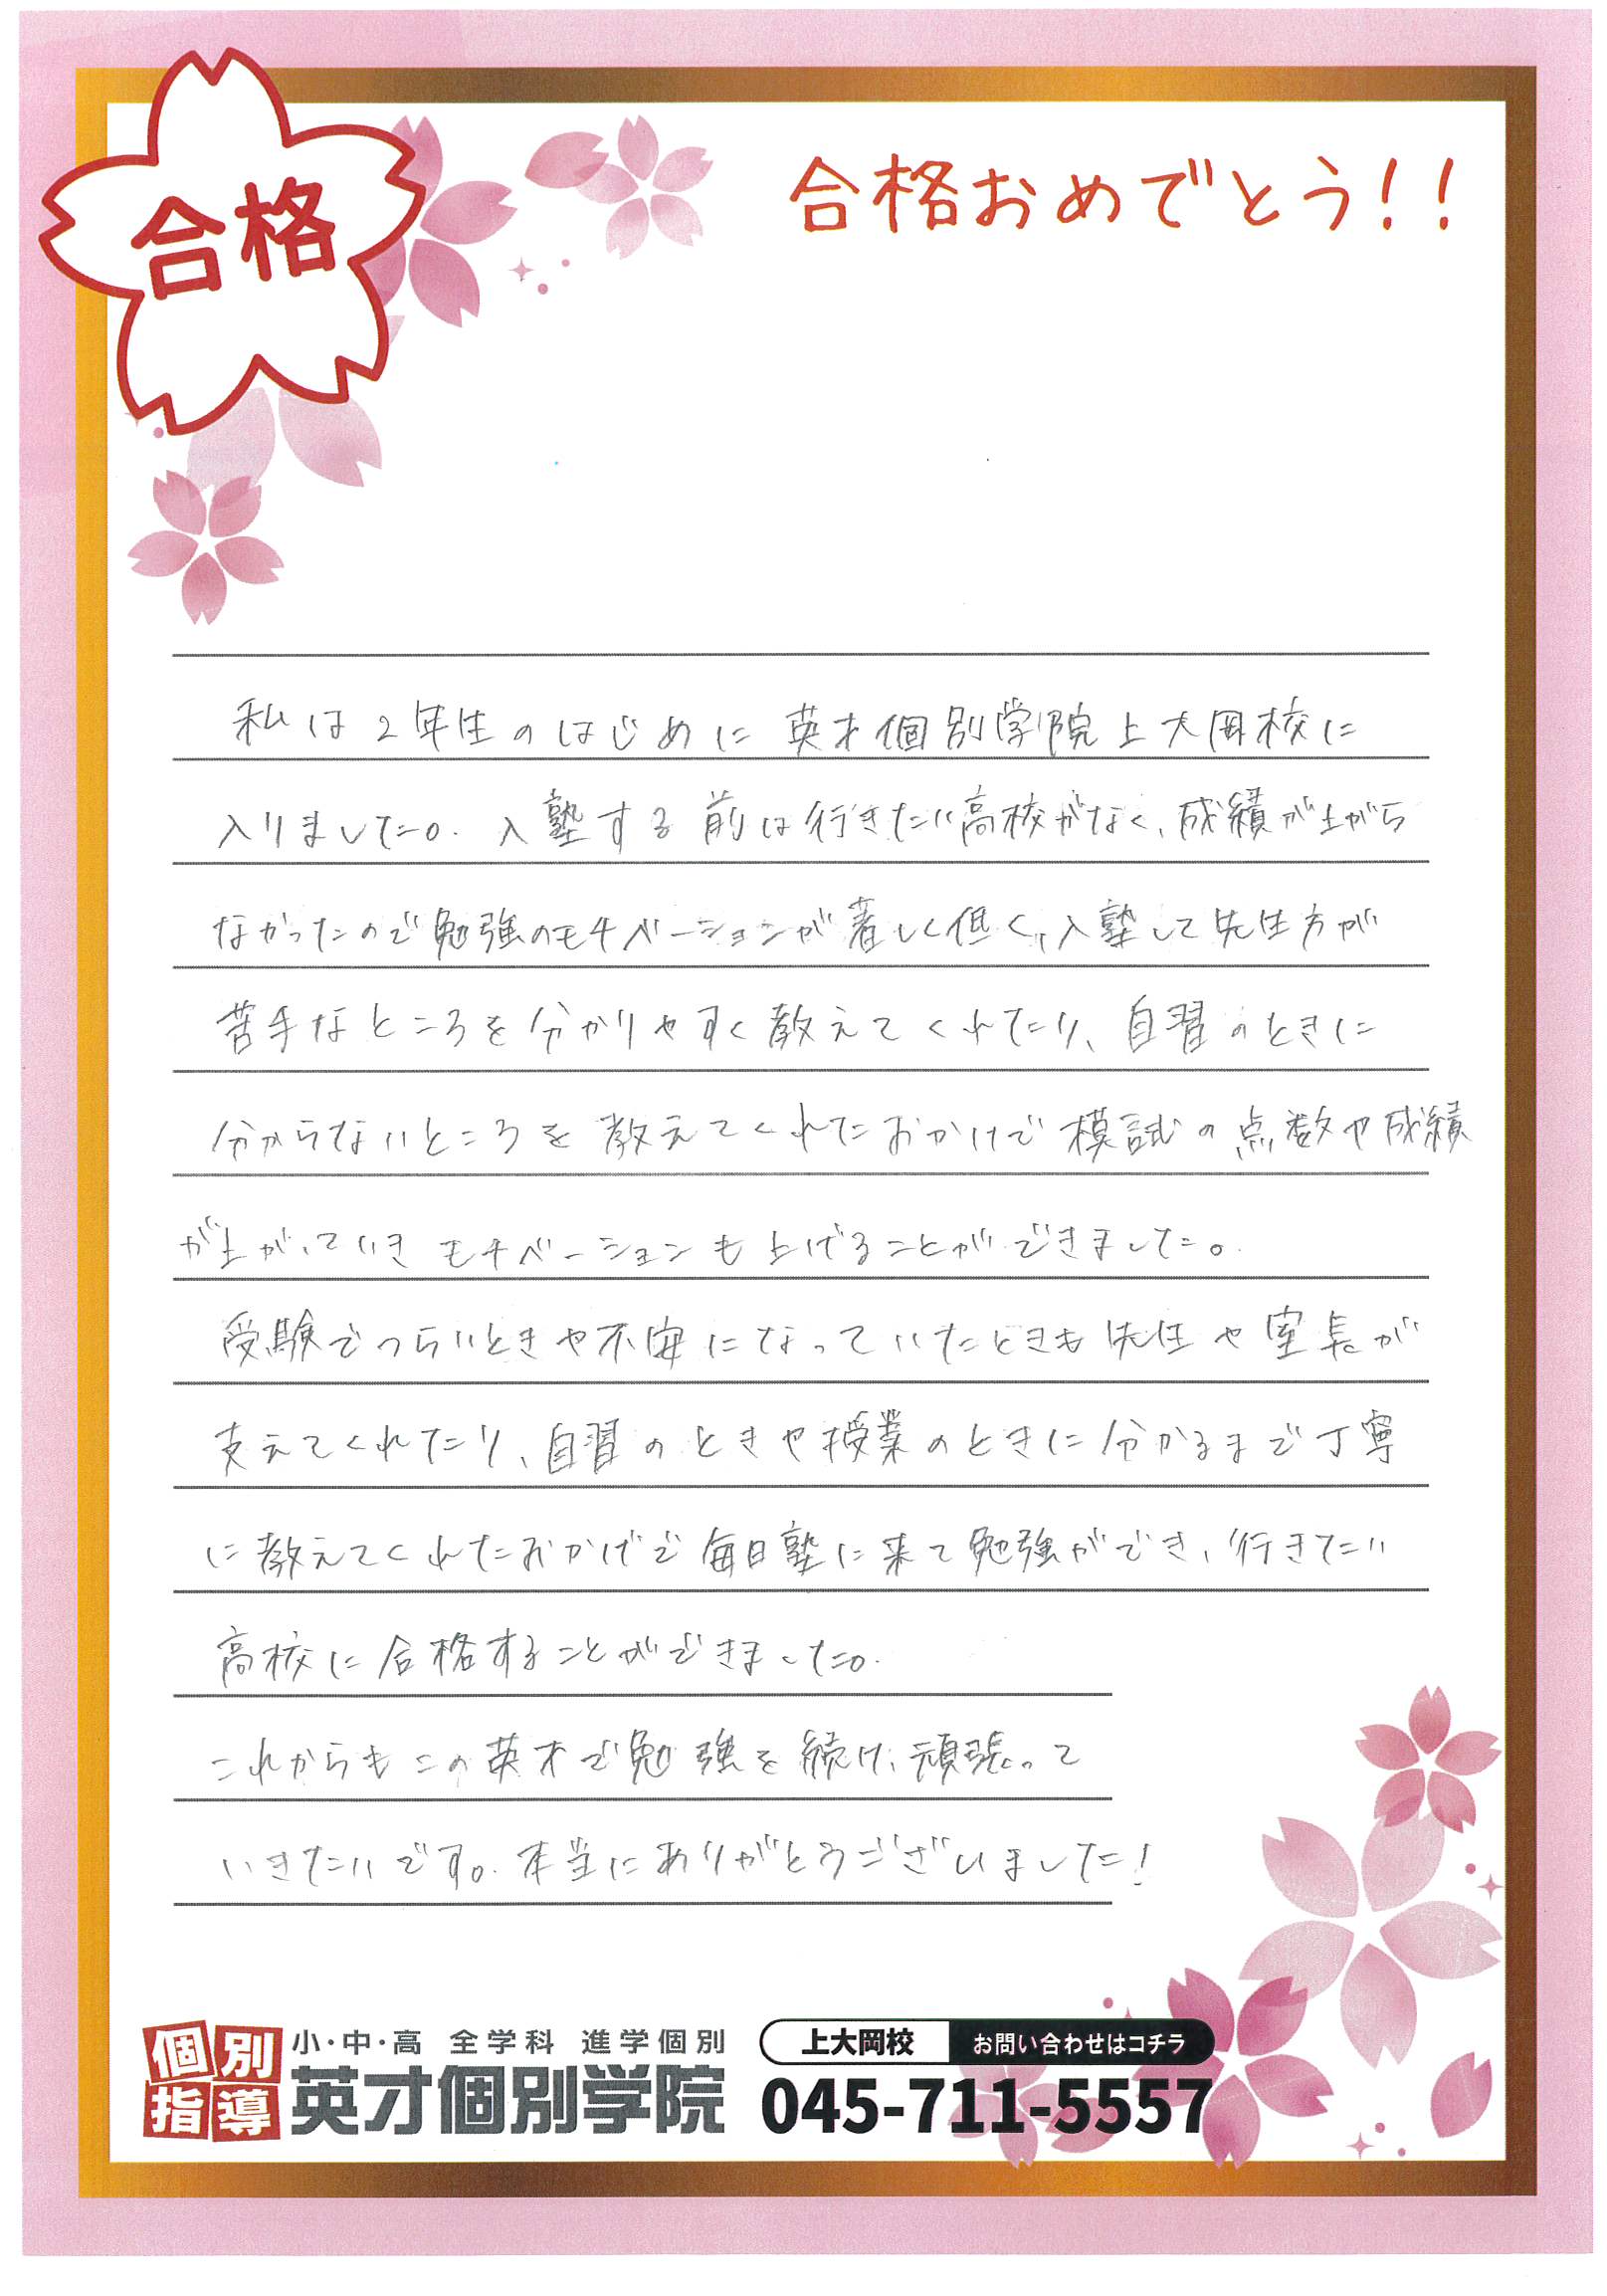 合格
合格おめでとう!!
私は2年生のはじめに英才個別学院上大岡校に
入りました。入塾する前は行きたい高校がなく、成績が上がら
なかったので勉強のモチベーションが著しく低く、入塾して先生方が
苦手なところを分かりやすく教えてくれたり、自習のときに
分からないところを教えてくれたおかげで模試の点数や成績
が上がっていきモチベーションも上げることができました。
受験でつらいときや不安になっていたときも先生や室長が
支えてくれたり、自習のときや授業のときに分かるまで丁寧
に教えてくれたおかげで毎日塾に来て勉強ができ、行きたい
高校に合格することができました。
これからもこの英才で勉強を続け、頑張って
いきたいです。本当にありがとうございました!
個別指導
小・中・高 全学科 進学個別
英才個別学院
上大岡校 お問い合わせはコチラ
045-711-5557